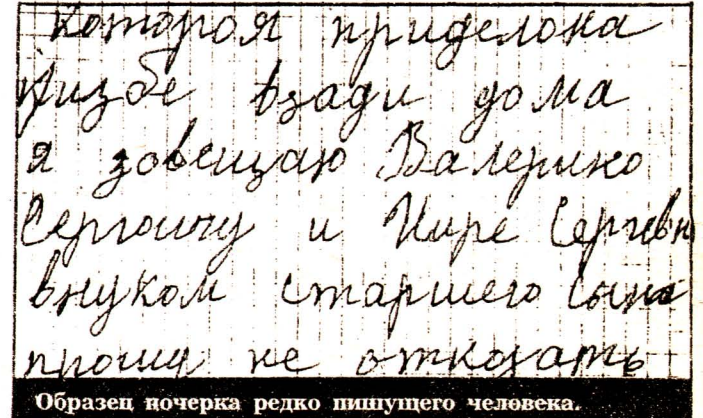 котороя приделона
призбе взади дома
я зовещаю Валерико
Сергоичу и Кире Сергевн
внуком старшего сына
прошу не откозать
Образец почерка редко пишущего человека.